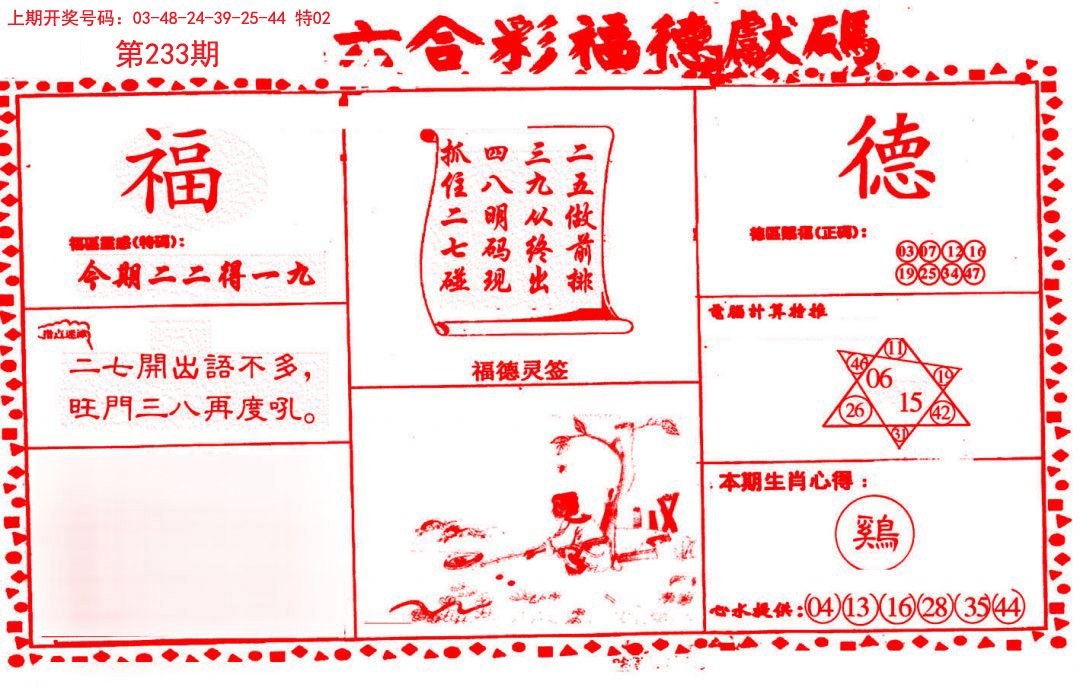 上期开奖号码：03-48-24-39-25-44 特02
第233期
六合彩福德獻碼
福
福區靈感(特碼)：
今期二二得一九
二七開出語不多，
旺門三八再度吼。
二五做前排
三九从终出
四八明码现
抓住二七碰
福德灵签
德
德區賜福(正碼)：
03 07 12 16
19 25 34 47
電腦計算特推
11
46
19
06
15
26
42
31
本期生肖心得：
鷄
心水提供：04 13 16 28 35 44